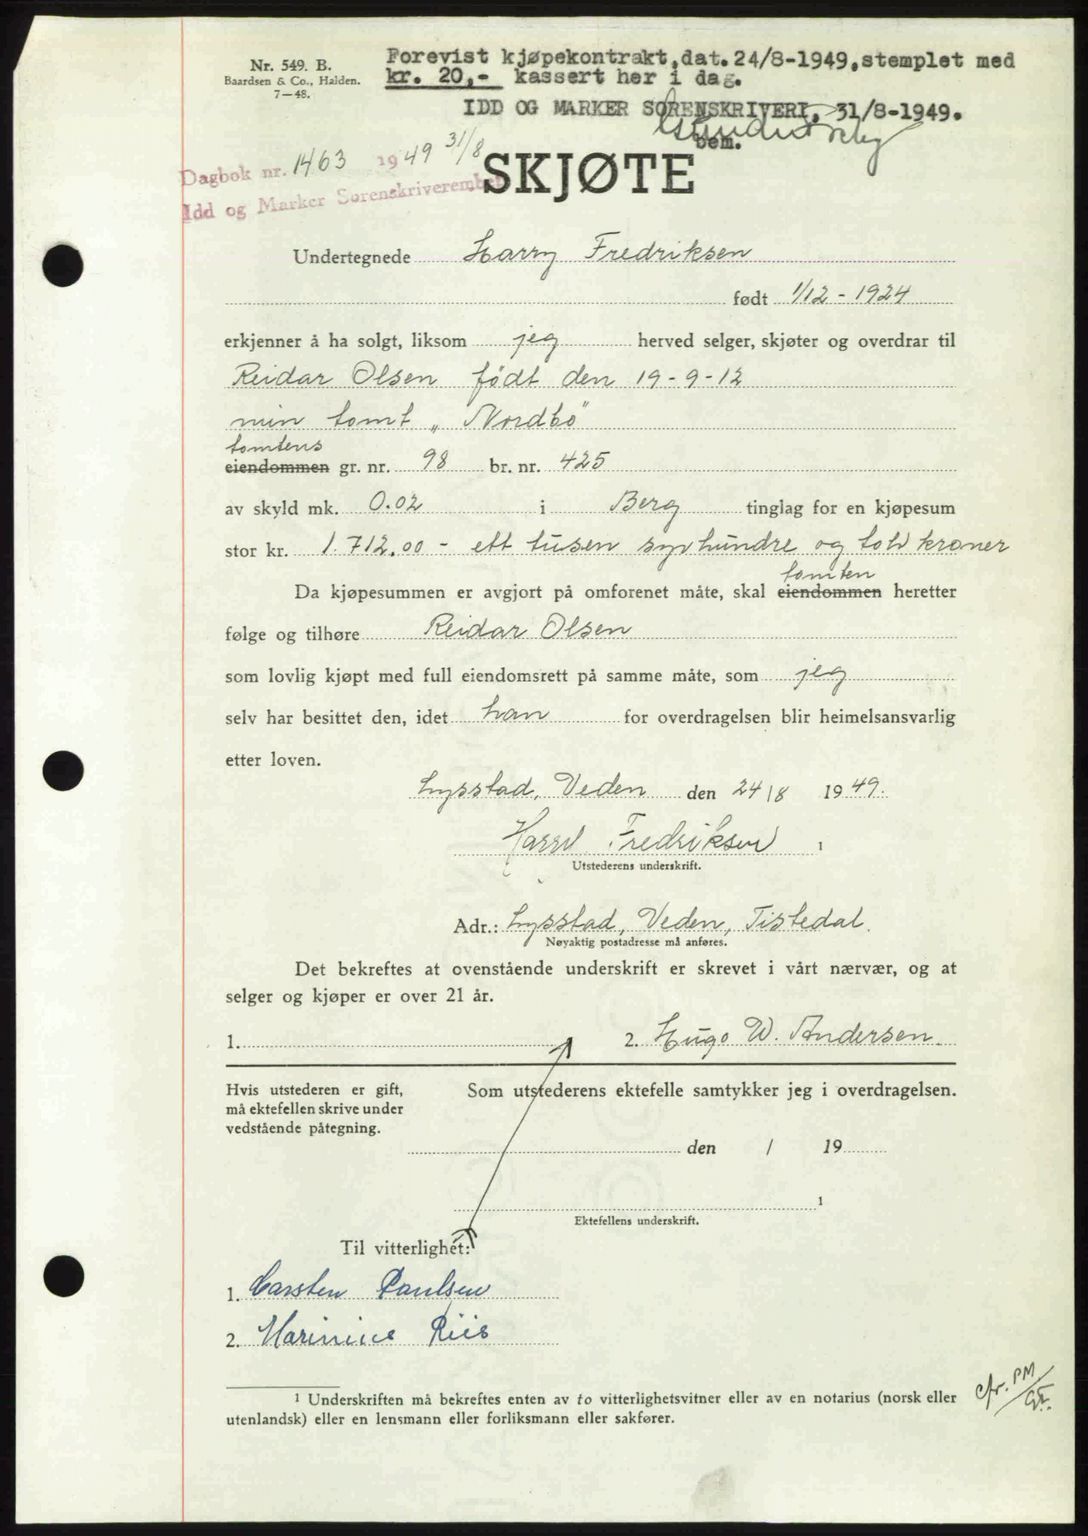 Nr. 549. B.
Baardsen & Co., Halden.
7—48.
Forevist kjøpekontrakt,dat.24/8-1949,stemplet med
kr. 20,- kassert her i dag.
IDD OG MARKER SORENSKRIVERI, 31/8-1949.
bem.
Dagbok nr. 1463 1949 31/8
Idd og Marker Sorenskriverembe
SKJØTE
Undertegnede Harry Fredriksen
født 1/12 - 1924
erkjenner å ha solgt, liksom jeg herved selger, skjøter og overdrar til
Reidar Olsen født den 19-9-12
min tomt „Nordbo"
tomtens
eiendommen gr. nr. 98 br. nr. 425
av skyld mk. 0.02 i Berg tinglag for en kjøpesum
stor kr. 1.712.00 - ett tusen syv hundre og tolv kroner
tomten
Da kjøpesummen er avgjort på omforenet måte, skal eiendommen heretter
følge og tilhøre Reidar Olsen
som lovlig kjøpt med full eiendomsrett på samme måte, som jeg
selv har besittet den, idet han for overdragelsen blir heimelsansvarlig
etter loven.
Lysstad, Veden den 24/8 1949.
Harry Fredriksen 1
Utstederens underskrift.
Adr.: Lysstad, Veden, Tistedal.
Nøyaktig postadresse må anføres.
Det bekreftes at ovenstående underskrift er skrevet i vårt nærvær, og at
selger og kjøper er over 21 år.
1. 2. Hugo W. Andersen.
Hvis utstederen er gift,
må ektefellen skrive under
vedstående påtegning.
Som utstederens ektefelle samtykker jeg i overdragelsen.
den / 19
1
Ektefellens underskrift.
Til vitterlighet:
1. Carsten Paulsen
2. Marinius Riis
1 Underskriften må bekreftes enten av to vitterlighetsvitner eller av en notarius (norsk eller
utenlandsk) eller en lensmann eller forliksmann eller sakfører.
cfr. PM